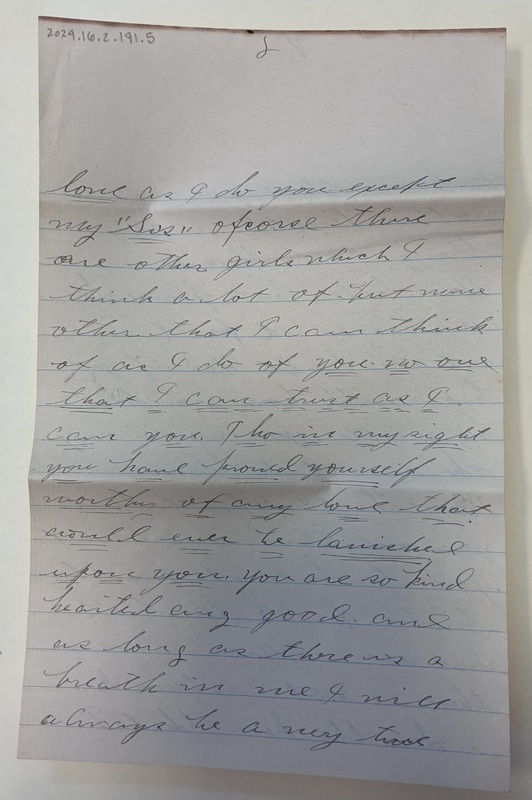 2024.16.2.191.5
2
love as I do you except
my "Sis" ofcorse there
are other girls which I
think a lot of but none
other that I can think
of as I do of you no one
that I can trust as I
can you. Tho in my sight
you have proved yourself
worthy of any love that
could ever be lavished
upon you. you are so kind
hearted ang good. and
as long as there is a
breath in me I will
always be a very true